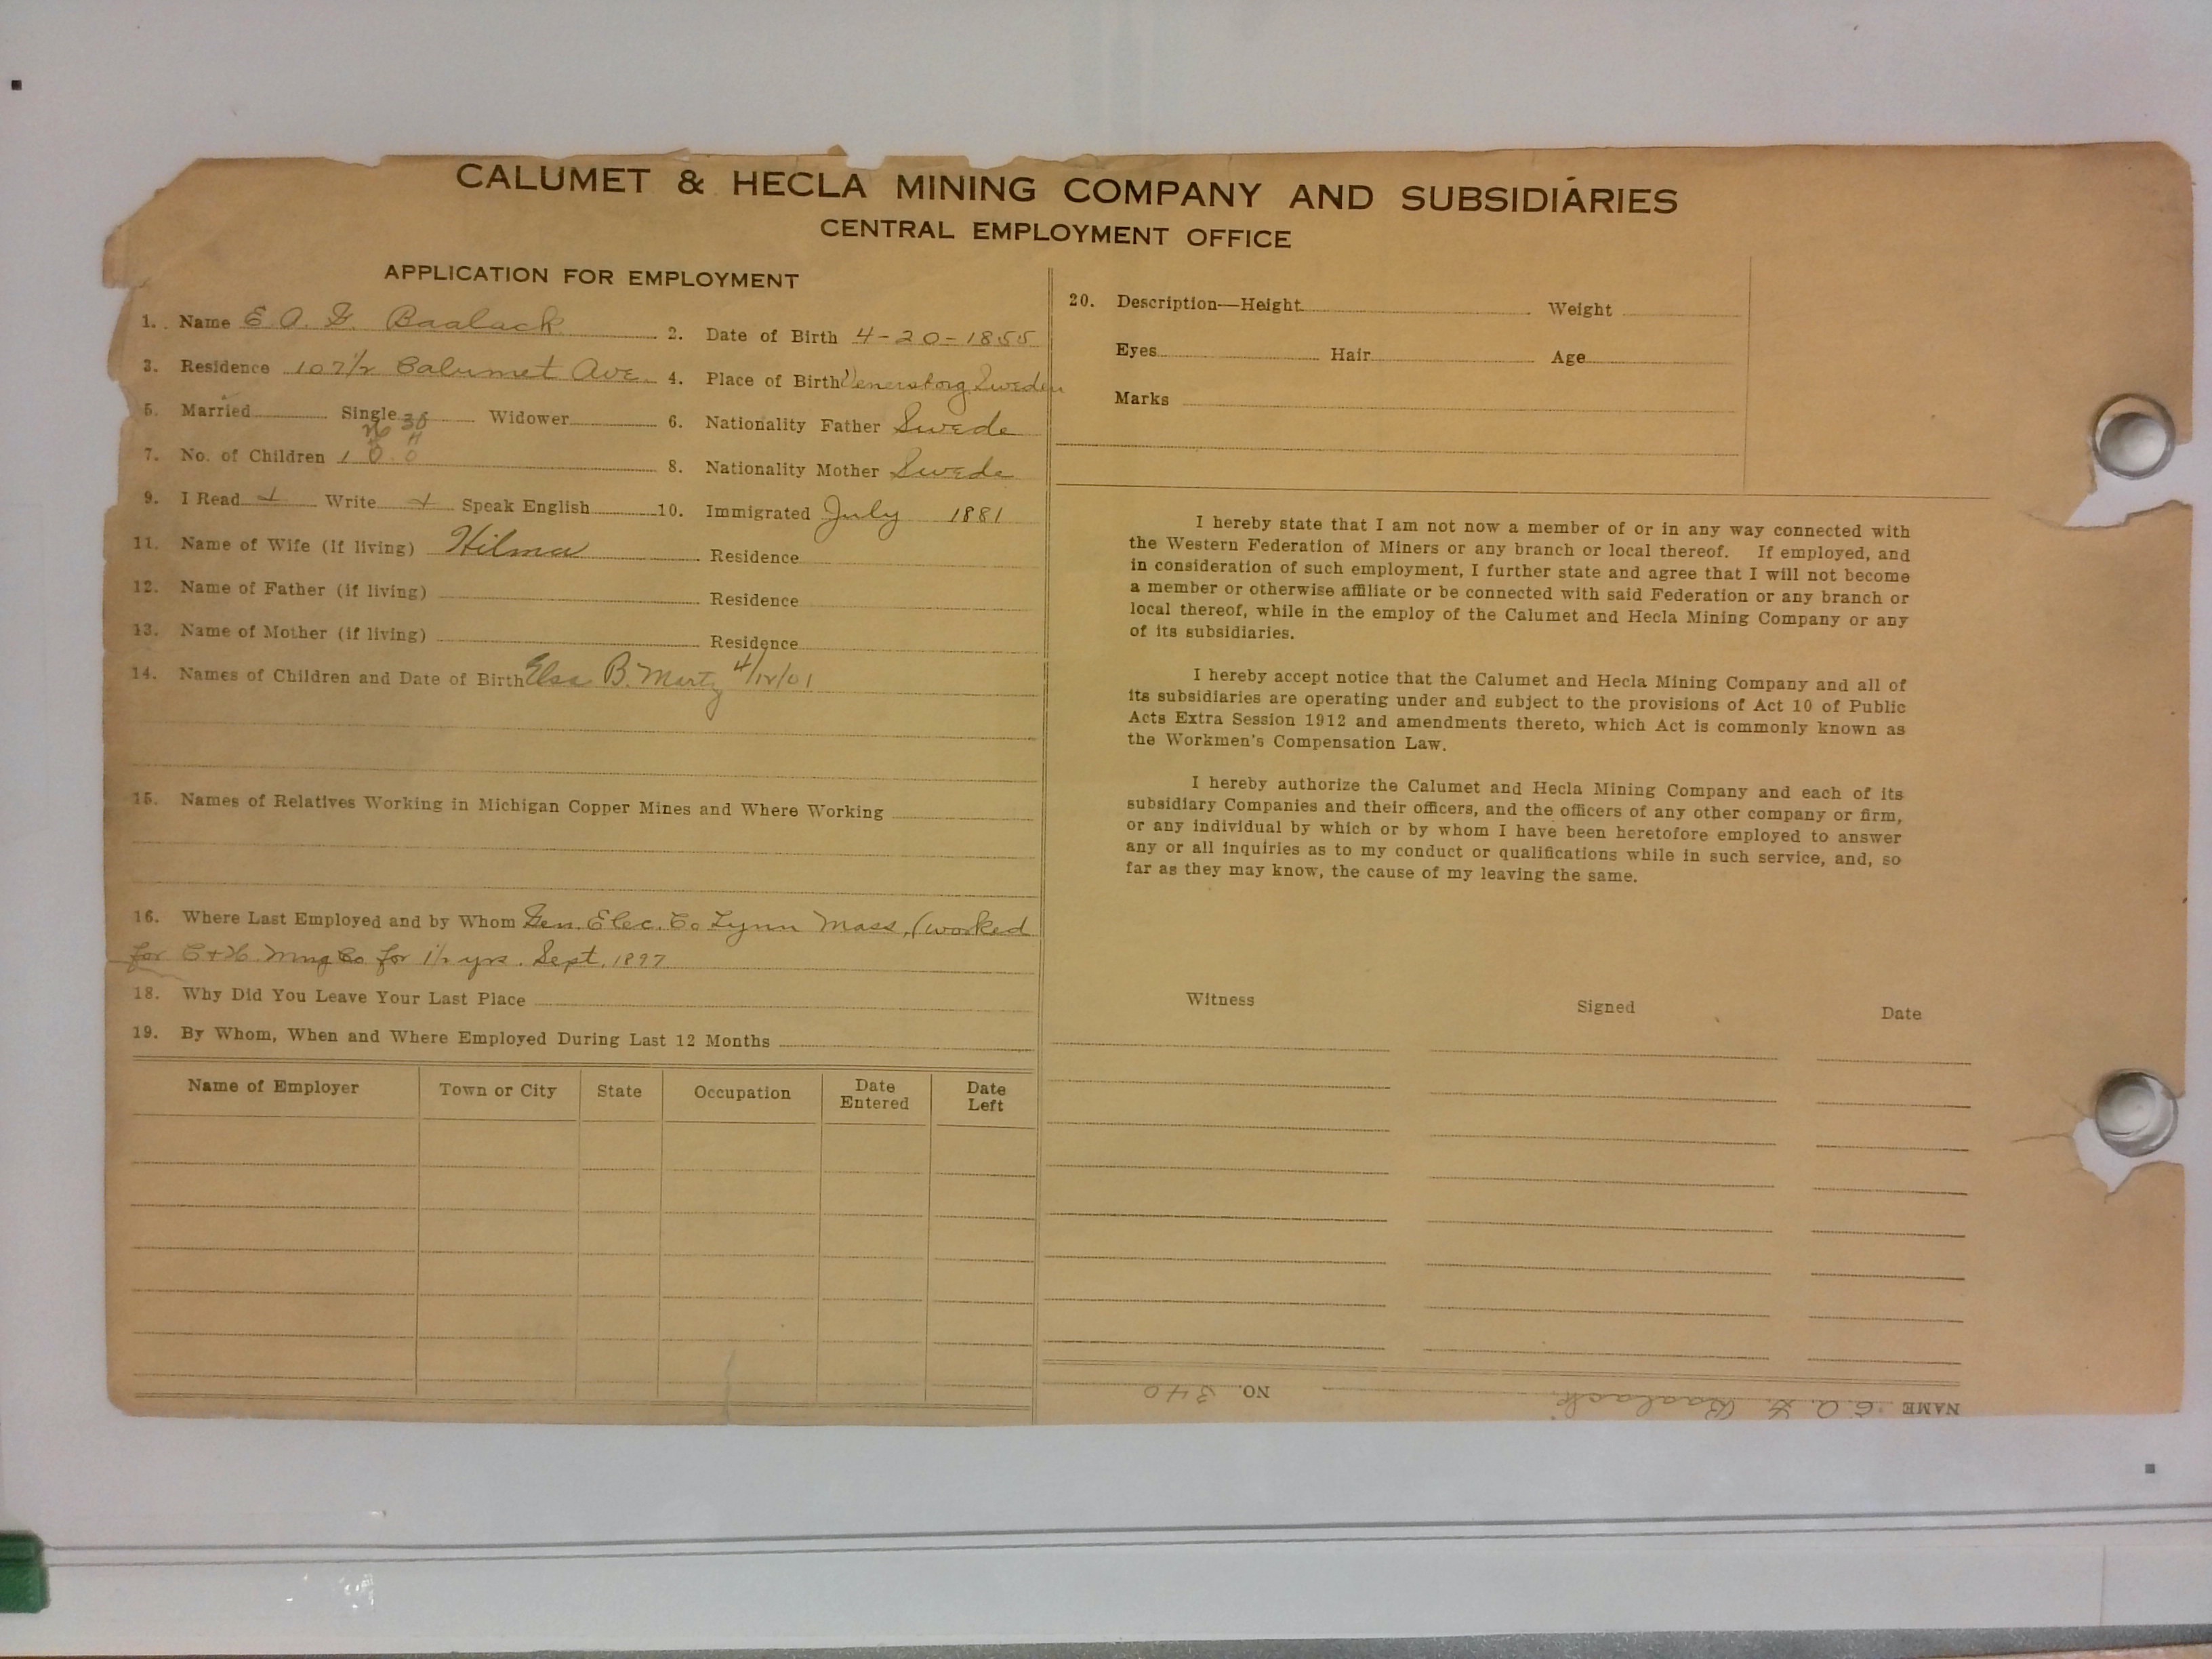 CALUMET & HECLA MINING COMPANY AND SUBSIDIARIES
CENTRAL EMPLOYMENT OFFICE
APPLICATION FOR EMPLOYMENT
1. Name E. A. G. Baalack 2. Date of Birth 4-20-1855
3. Residence 107 1/2 Calumet Ave. 4. Place of Birth Venersborg Sweden
5. Married Single Widower 6. Nationality Father Swede
7. No. of Children 1 8. Nationality Mother Swede
9. I Read Write Speak English 10. Immigrated July 1881
11. Name of Wife (If living) Hilma Residence
12. Name of Father (if living) Residence
13. Name of Mother (if living) Residence
14. Names of Children and Date of Birth Elsa B. Marty 4/12/01
15. Names of Relatives Working in Michigan Copper Mines and Where Working
16. Where Last Employed and by Whom Gen. Elec. Co Lynn Mass. (worked
for C + H. Mng Co for 1 1/2 yrs. Sept. 1897
18. Why Did You Leave Your Last Place
19. By Whom, When and Where Employed During Last 12 Months
Name of Employer Town or City State Occupation Date Entered Date Left
20. Description—Height Weight
Eyes Hair Age
Marks
I hereby state that I am not now a member of or in any way connected with
the Western Federation of Miners or any branch or local thereof. If employed, and
in consideration of such employment, I further state and agree that I will not become
a member or otherwise affiliate or be connected with said Federation or any branch or
local thereof, while in the employ of the Calumet and Hecla Mining Company or any
of its subsidiaries.
I hereby accept notice that the Calumet and Hecla Mining Company and all of
its subsidiaries are operating under and subject to the provisions of Act 10 of Public
Acts Extra Session 1912 and amendments thereto, which Act is commonly known as
the Workmen's Compensation Law.
I hereby authorize the Calumet and Hecla Mining Company and each of its
subsidiary Companies and their officers, and the officers of any other company or firm,
or any individual by which or by whom I have been heretofore employed to answer
any or all inquiries as to my conduct or qualifications while in such service, and, so
far as they may know, the cause of my leaving the same.
Witness Signed Date
NAME E. A. G. Baalack NO. 340